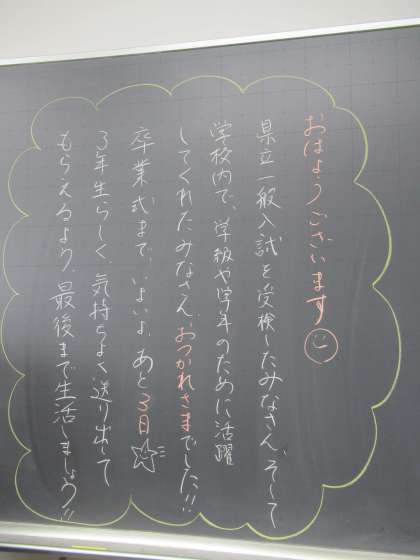 おはようございます
県立一般入試を受検したみなさん、そして
学校内で、学級や学年のために活躍
してくれたみなさん、おつかれさまでした!!
卒業式まで、いよいよあと3日
3年生らしく、気持ちよく送り出して
もらえるよう、最後まで生活しましょう!!